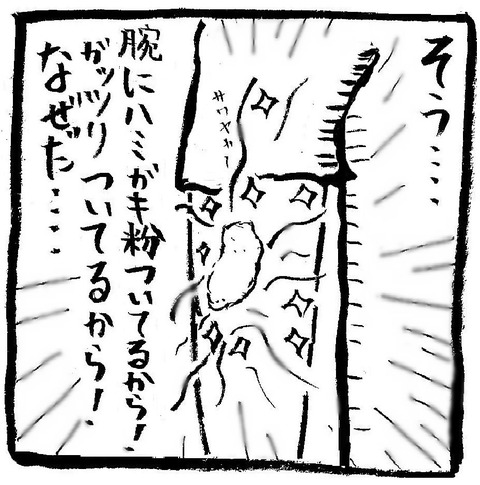 そう・・・・
サワヤカー
腕にハミガキ粉ついてるから!
ガッツリついてるから!
なぜだ・・・・